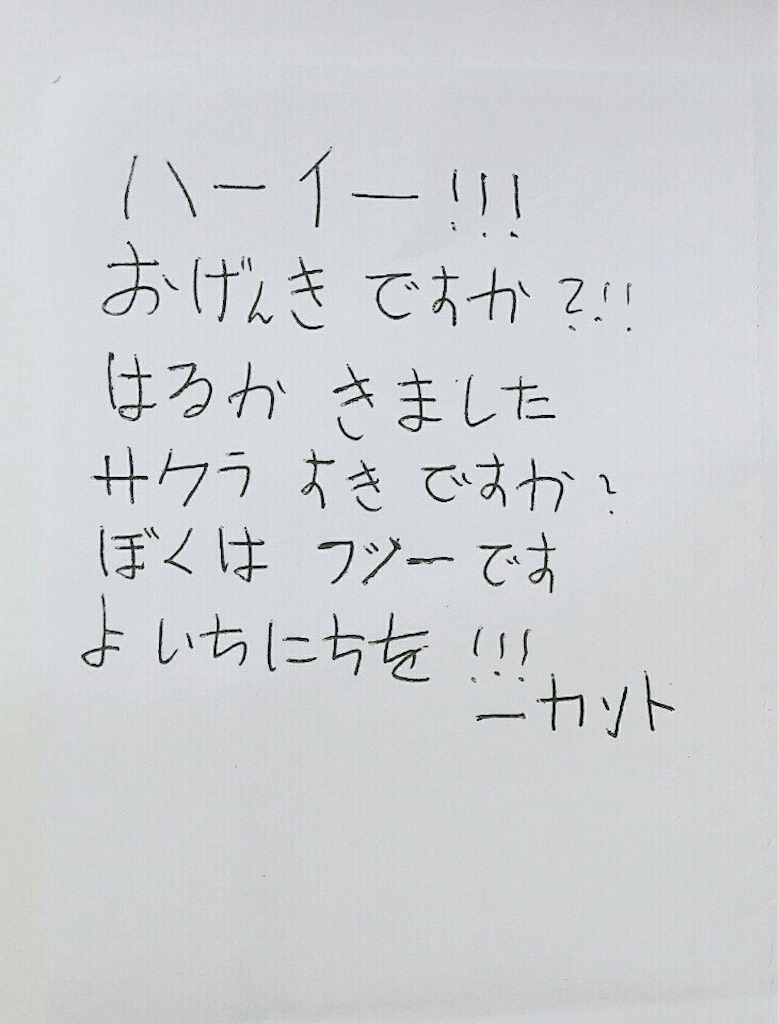 ハーイー!!!
おげんきですか?!!
はるか きました
サクラ すきですか?
ぼくは フツーです
よいちにちを!!!
ーカソト